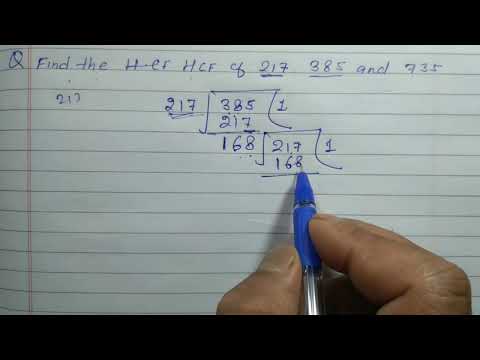 Q Find the H.CF HCF of 217 385 and 735
217
217 385 1
217
168 217 1
168